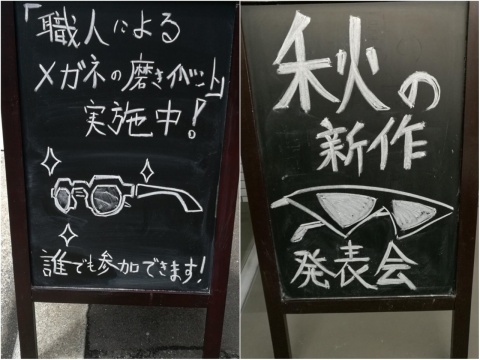 「職人による
メガネの磨きイベント」
実施中!
誰でも参加できます!
秋の
新作
発表会